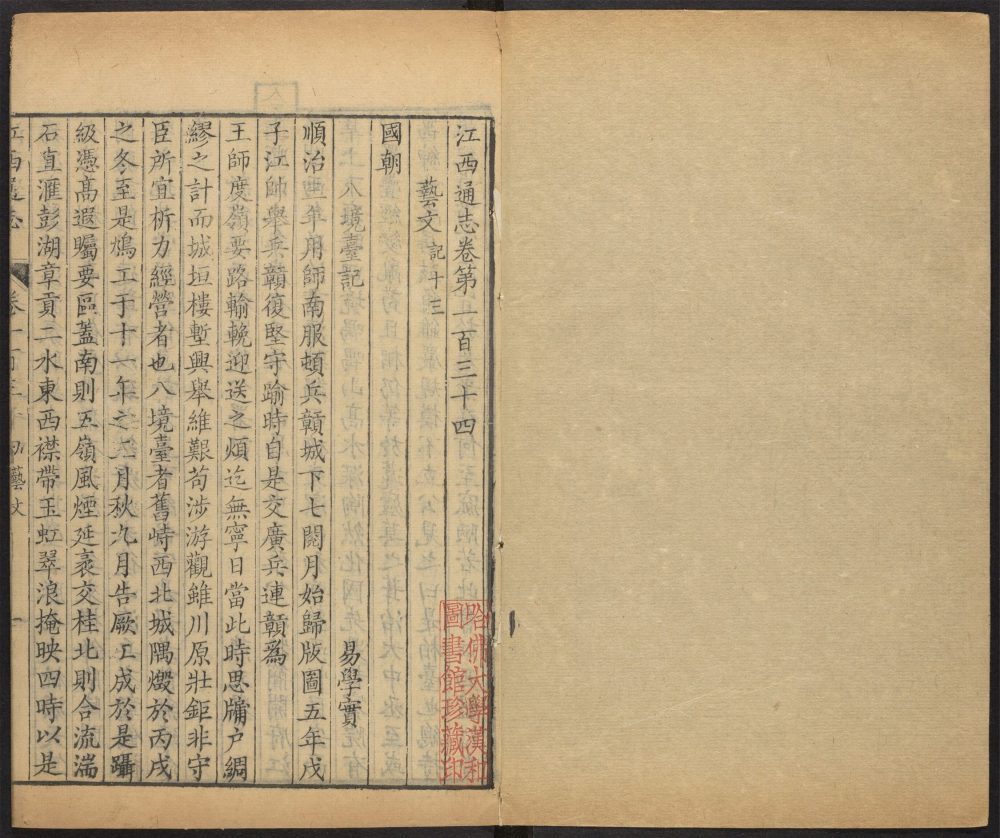 江西通志卷第一百三十四
藝文 記十三
國朝
八境臺記 易學實
順治四年用師南服頓兵贛城下七閱月始歸版圖五年戊
子江帥舉兵贛復堅守踰時自是交廣兵連贛為
王師度嶺要路輸輓迎送之煩迄無寧日當此時思牖户綢
繆之計而城垣樓塹興舉維艱苟涉游觀雖川原壯鉅非守
臣所宜析力經營者也八境臺者舊峙西北城隅燬於丙戌
之冬至是鳩工于十一年之二月秋九月告厥工成於是躡
級憑高遐矚要區蓋南則五嶺風煙延袤交桂北則合流湍
石直滙彭湖章貢二水東西襟帶玉虹翠浪掩映四時以是
江西通志 卷一百三十四 藝文 一
哈佛大學漢和
圖書館珍藏印